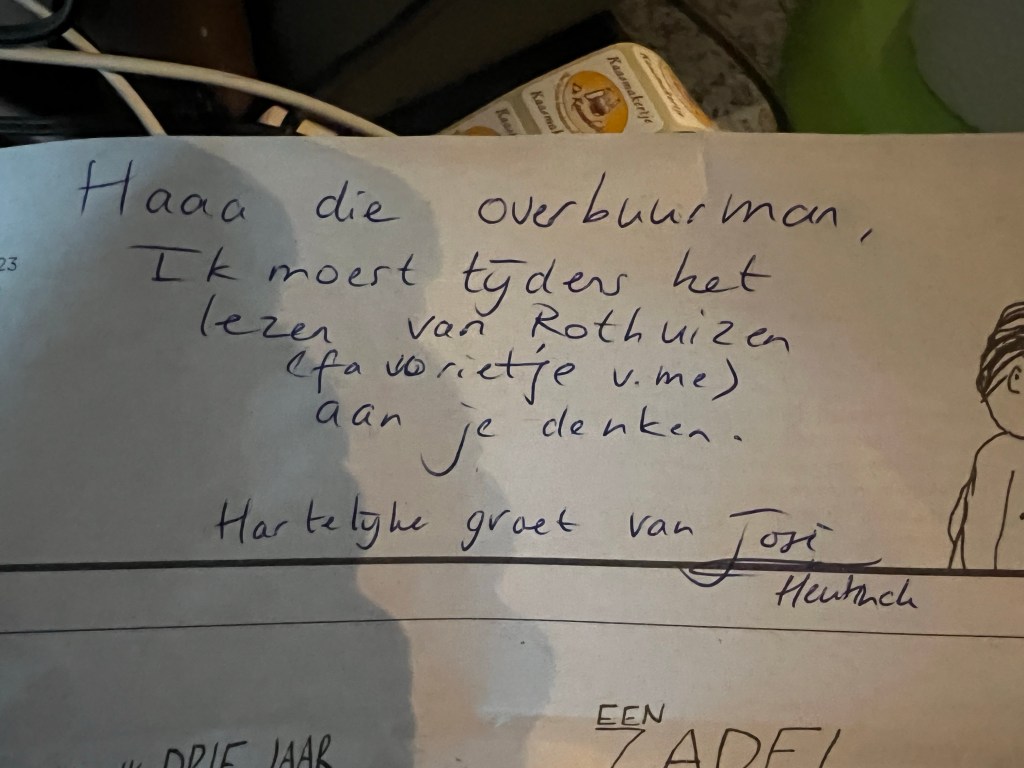 Kaasmakertje
Haaa die overbuurman,
23
Ik moest tijdens het
lezen van Rothuizen
(favorietje v. me)
aan je denken.
Hartelijke groet van José
EEN
DRIE JAAR
ZADEL